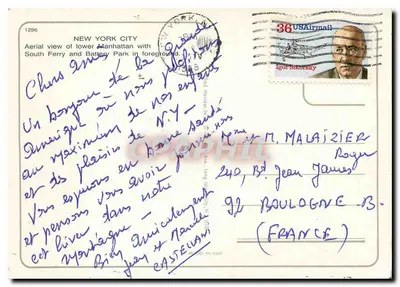 1296
NEW YORK CITY
Aerial view of lower Manhattan with
South Ferry and Battery Park in foreground.
NEW YORK
36 USAirmail
Igor Sikorsky
Chers amis
Un bonjour de la Grande
Amérique où nous profitons
au maximum de nos enfants
et des plaisirs de N.Y.
Vous espérons en bonne santé
et pensons vous avoir parmi nous
cet hiver dans notre
montagne -
Bien amicalement
Jean et
CASTELLAN
Mme et M. MALAIZIER
Roger
240, Bd Jean Jaurès
92 BOULOGNE - B.
(FRANCE)